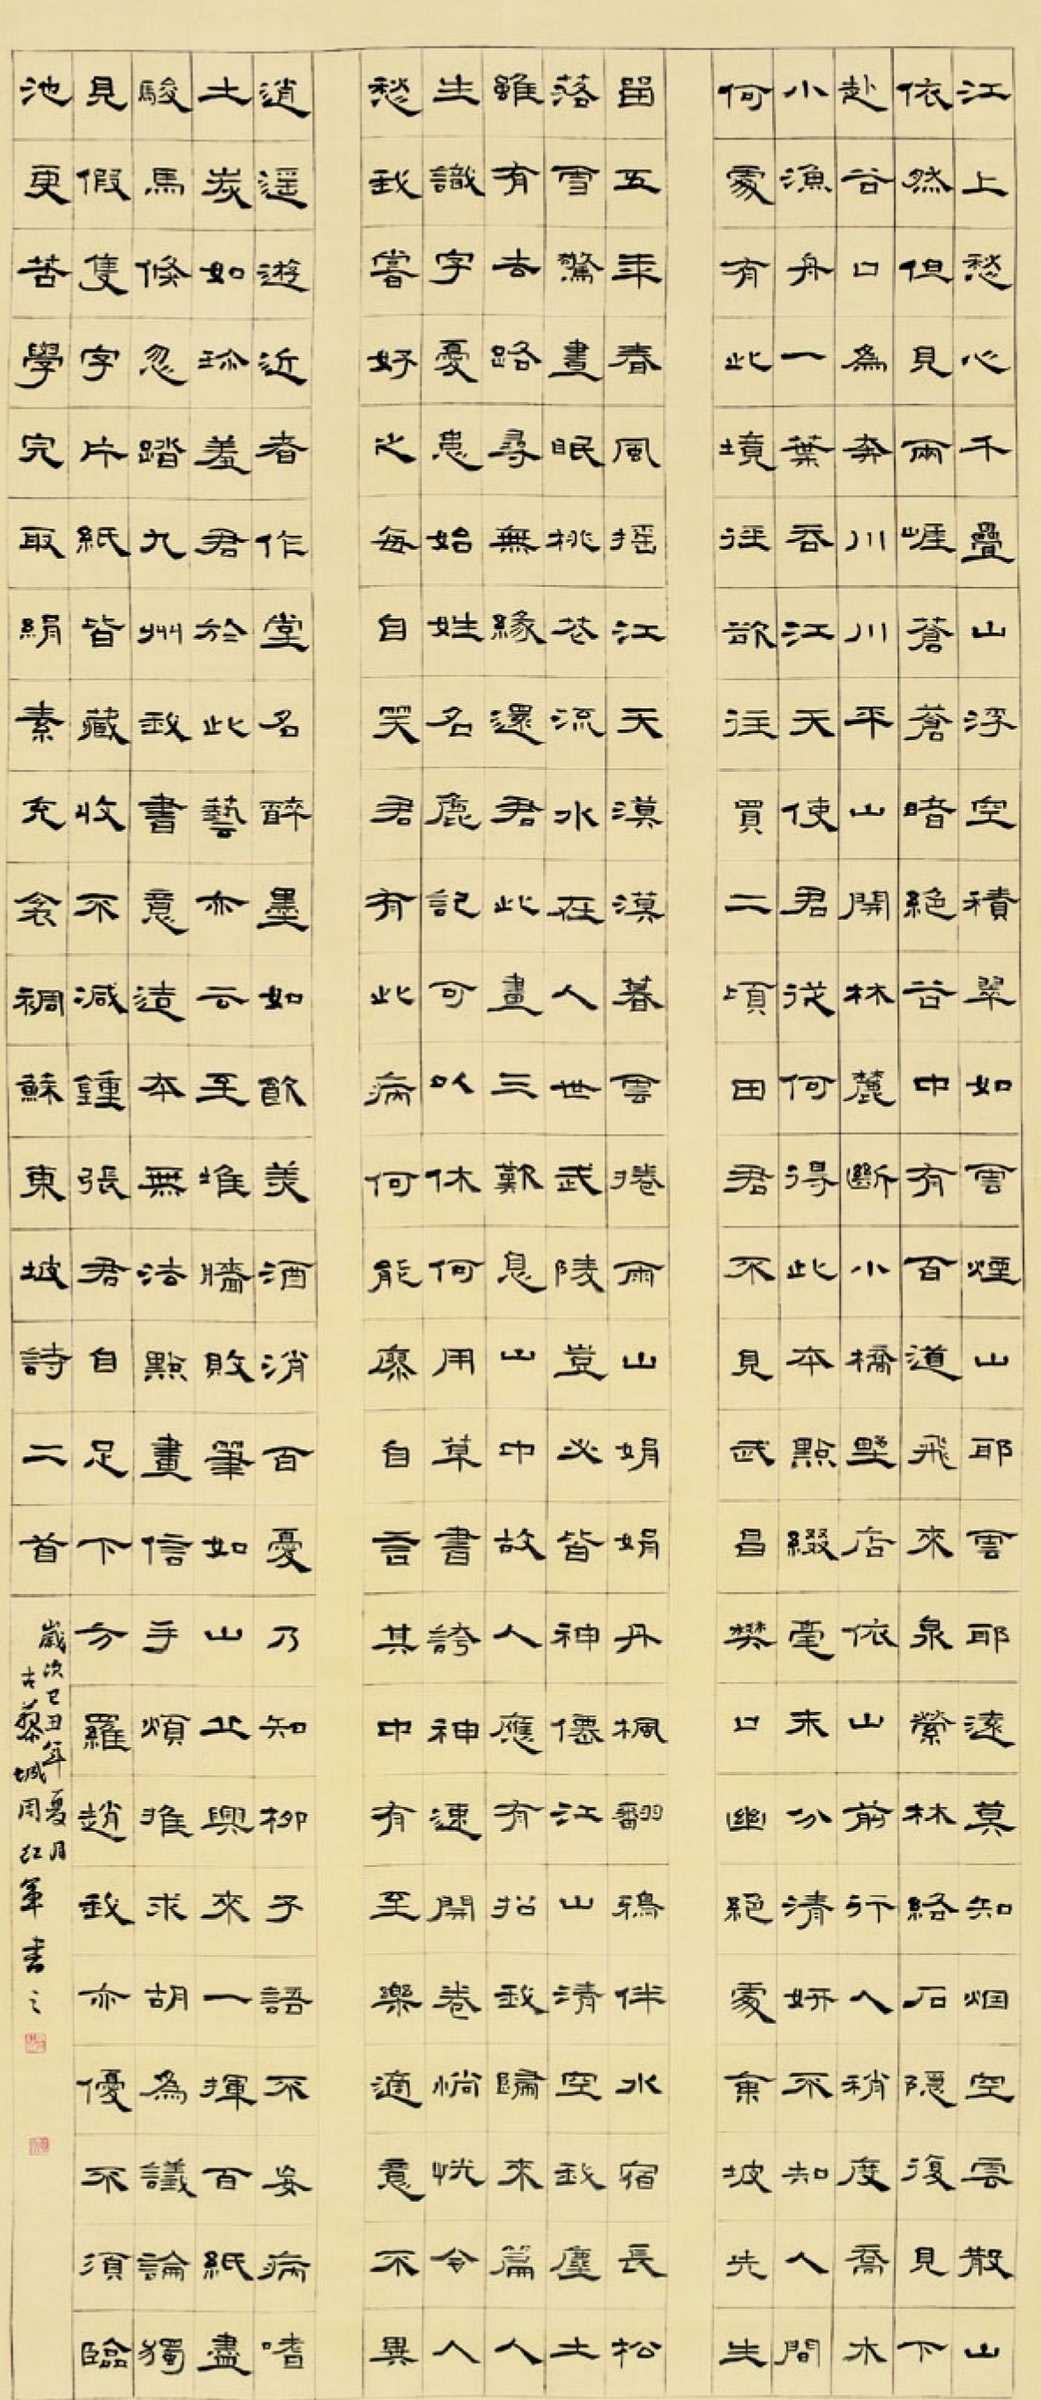 江上愁心千疊山浮空積翠如雲煙山耶雲耶遠莫知烟空雲散山
依然但見兩崖蒼蒼暗絕谷中有百道飛來泉縈林絡石隱復見下
赴谷口為奔川川平山開林麓斷小橋野店依山前行人稍度喬木
小漁舟一葉吞江天使君從何得此本點綴毫末分清妍不知人間
何處有此境徑欲往買二頃田君不見武昌樊口幽絕處東坡先生
留五年春風搖江天漠漠暮雲捲雨山娟娟丹楓翻鴉伴水宿長松
落雪驚晝眠桃花流水在人世武陵豈必皆神僊江山清空我塵土
雖有去路尋無緣還君此畫三歎息山中故人應有招我歸來篇人
生識字憂患始姓名麁記可以休何用草書誇神速開卷惝怳令人
愁我嘗好之每自笑君有此病何能廖自言其中有至樂適意不異
逍遙遊近者作堂名醉墨如飲美酒消百憂乃知柳子語不妄病嗜
土炭如珍羞君於此藝亦云至堆牆敗筆如山丘興來一揮百紙盡
駿馬倏忽踏九州我書意造本無法點畫信手煩推求胡為議論獨
見假隻字片紙皆藏收不減鍾張君自足下方羅趙我亦優不須臨
池更苦學完取絹素充衾裯蘇東坡詩二首
歲次己丑年夏月
古黎城周紅軍書之